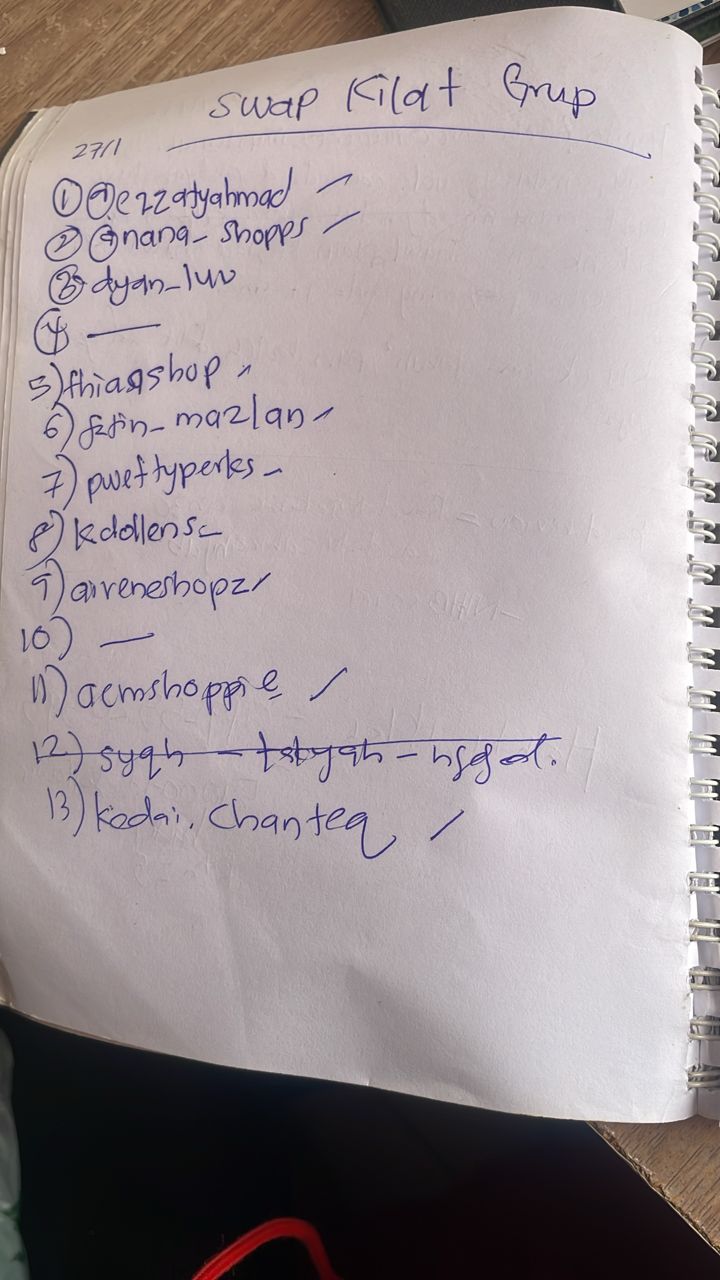 Swap Kilat Grup
27/1
① @ezzatyahmad /
② @nana_shopps /
③ dyan_luv
④ —
5) fhiaashop /
6) fztin_mazlan /
7) pwettyperks -
8) kdollens -
9) aireneshopz /
10) —
11) acmshoppie /
12)
13) kedai.chanteq /